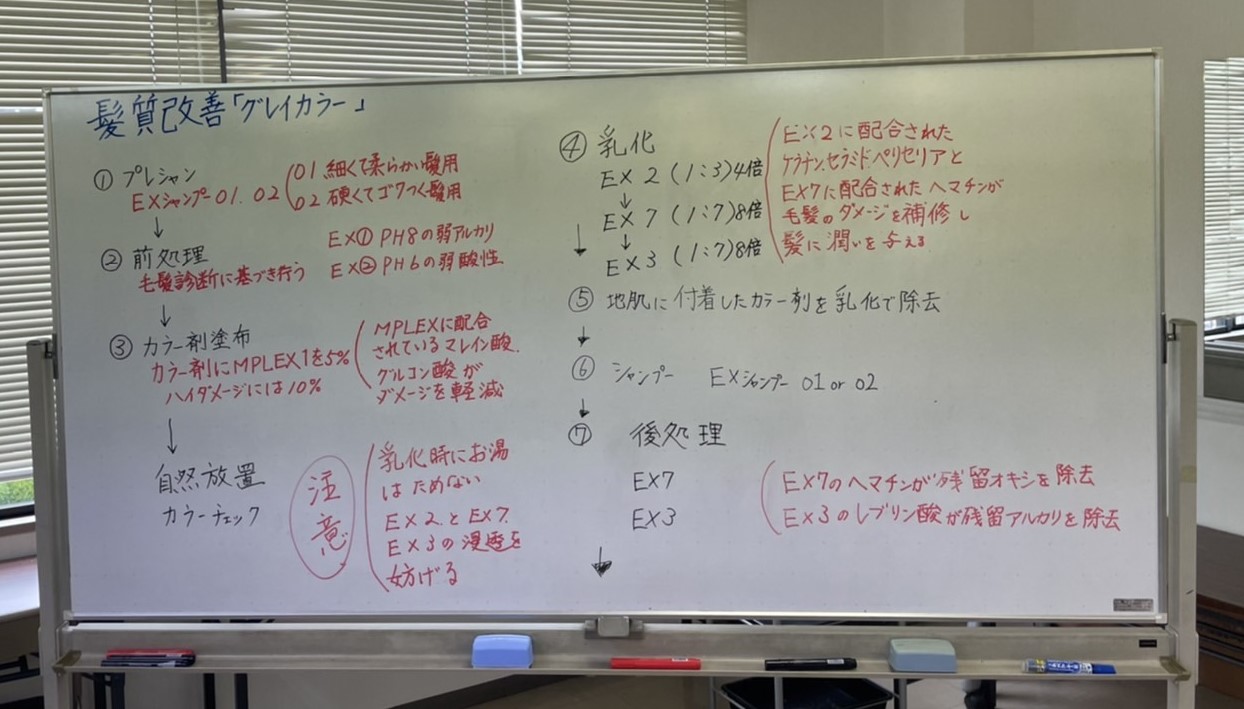 髪質改善「グレイカラー」
① プレシャン
EXシャンプー01.02
01 細くて柔らかい髪用
02 硬くてゴワつく髪用
↓
EX① PH8の弱アルカリ
EX② PH6の弱酸性
② 前処理
毛髪診断に基づき行う
↓
③ カラー剤塗布
カラー剤にMPLEX1を5%
ハイダメージには10%
MPLEXに配合
されているマレイン酸.
グルコン酸が
ダメージを軽減
↓
自然放置
カラーチェック
注意
乳化時にお湯
はためない
EX2.とEX7.
EX3の浸透を
妨げる
④ 乳化
EX2(1:3)4倍
↓
EX7(1:7)8倍
↓
EX3(1:7)8倍
EX2に配合された
ケラチン.セラミドペリセリアと
EX7に配合されたヘマチンが
毛髪のダメージを補修し
髪に潤いを与える
↓
⑤ 地肌に付着したカラー剤を乳化で除去
↓
⑥ シャンプー EXシャンプー 01 or 02
↓
⑦ 後処理
EX7
EX3
EX7のヘマチンが残留オキシを除去
EX3のレブリン酸が残留アルカリを除去
↓